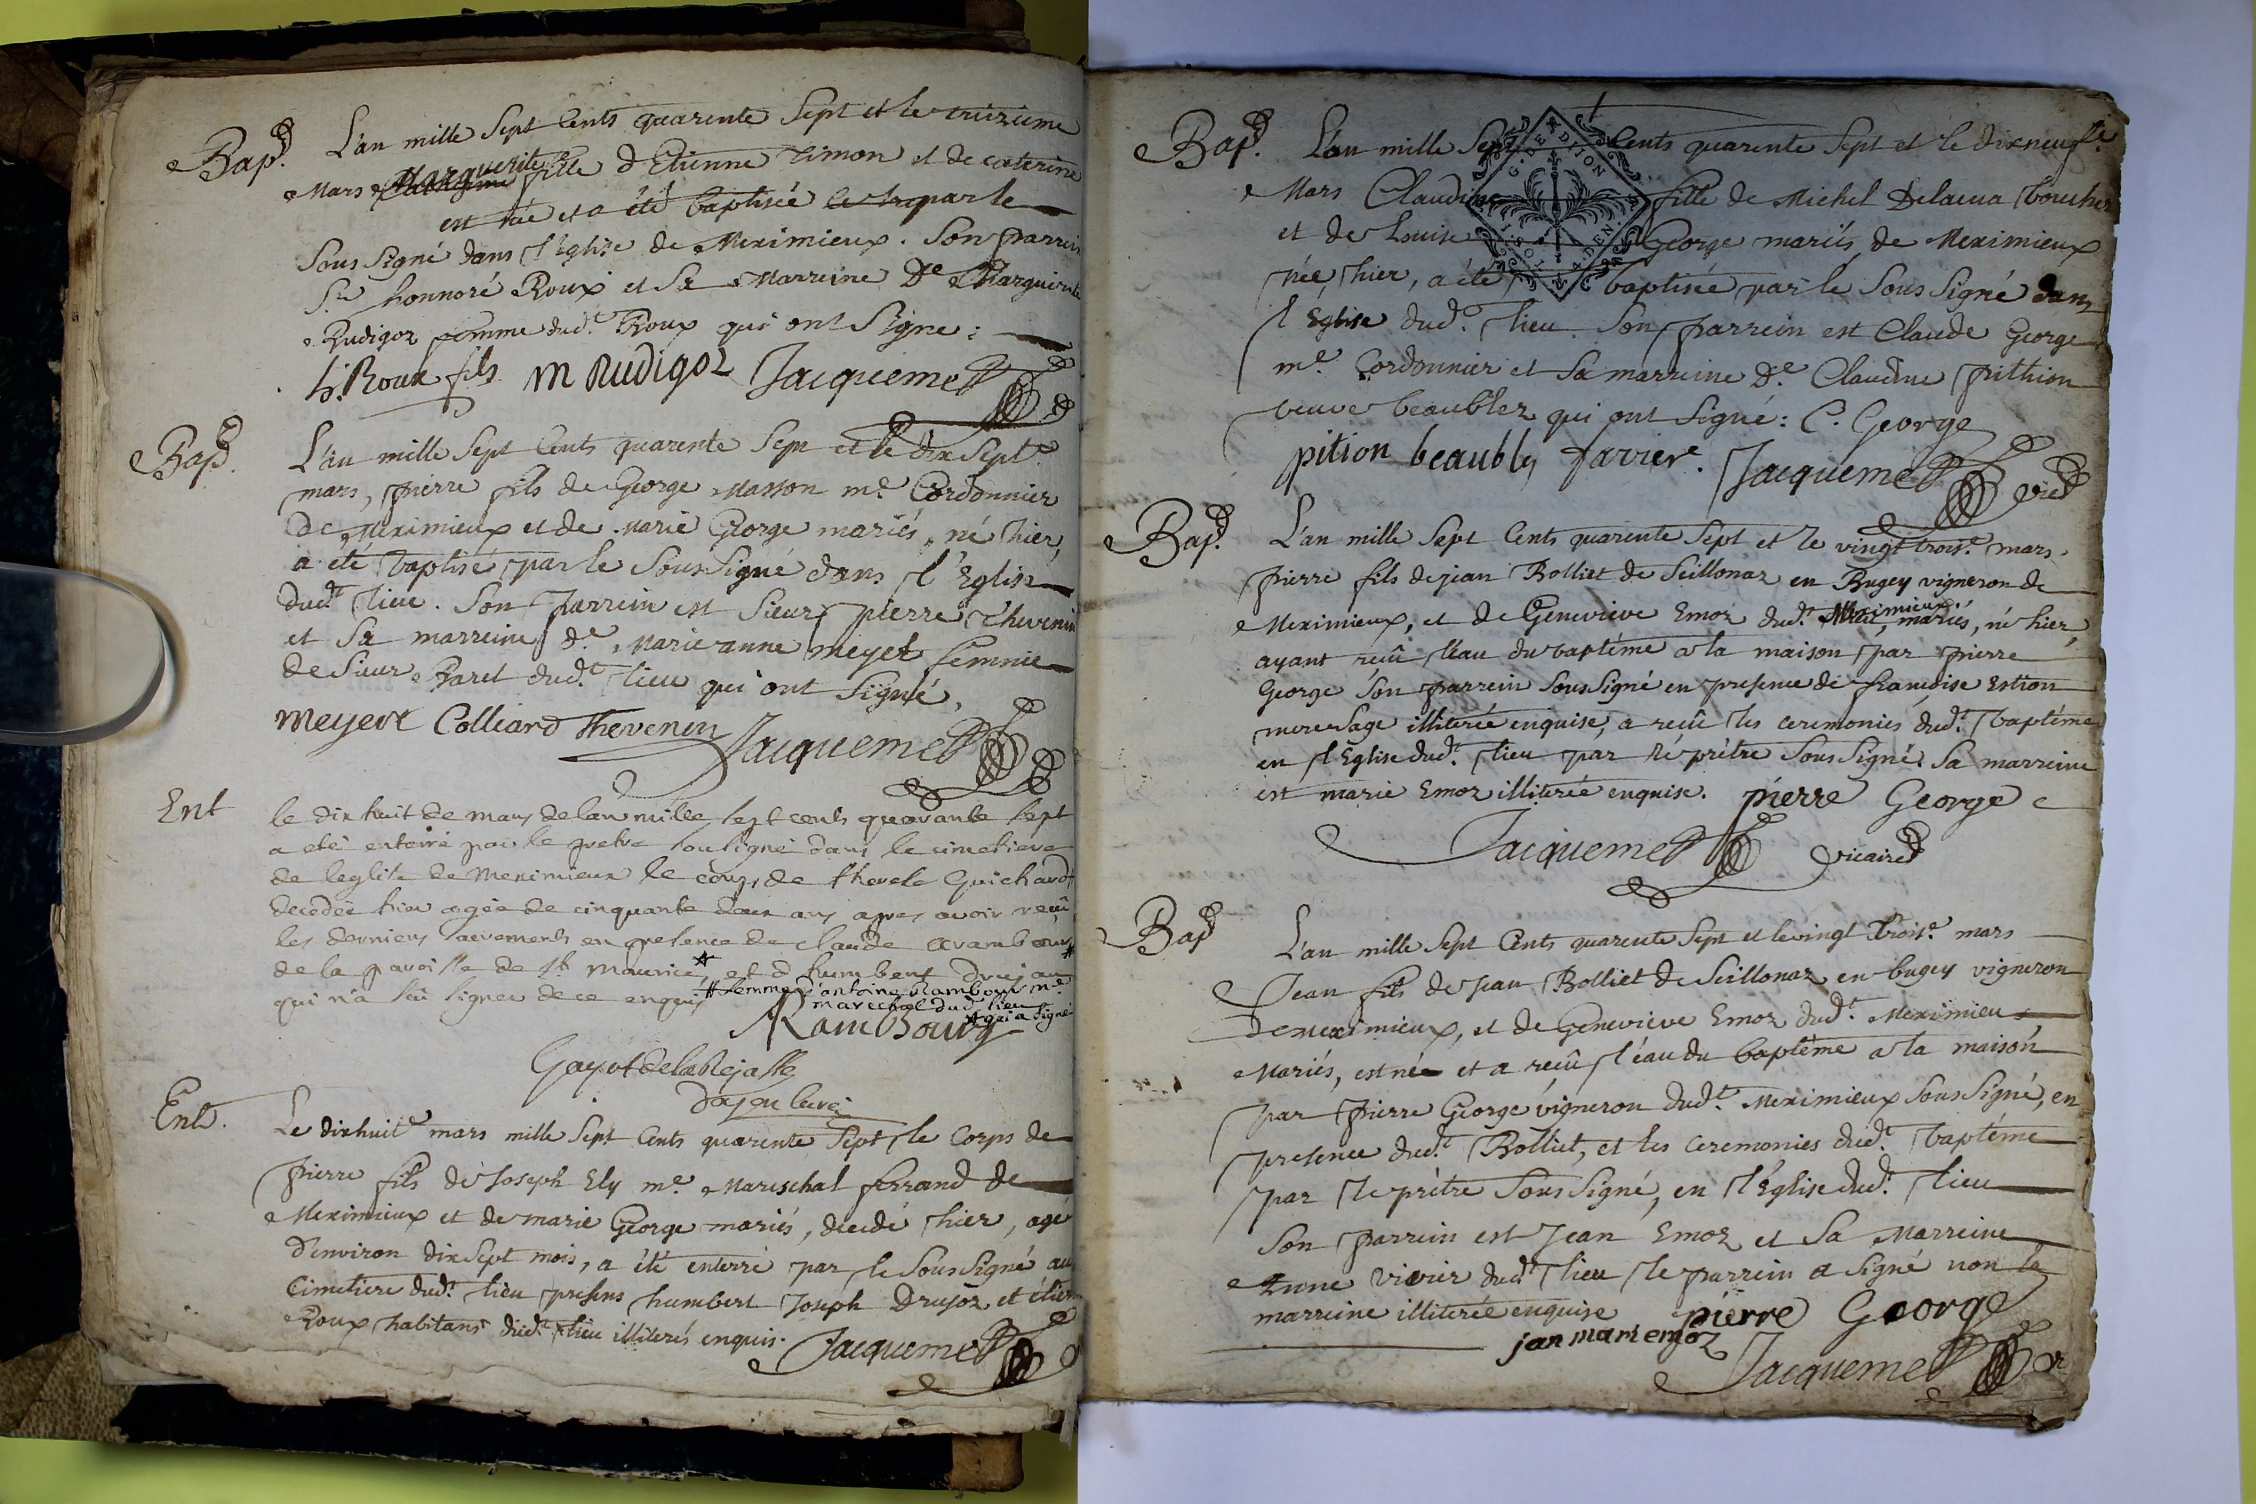 Bap.
L'an mille Sept Cents quarente Sept et le treizieme
Mars Marguerite fille d'Etienne Timon et de caterine
est née et a été baptisée par le
Sous Signé dans l'Eglise de Meximieux. Son parrein
Sr. honnoré Roux et Sa Marreine De. Marguerite
Rudigoz femme dud.t Roux qui ont Signé:
h. Roux fils M Rudigoz Jacquemet
Bap.
L'an mille Sept Cents quarente Sept et le dix Sept.e
mars, pierre fils de George Masson m.e Cordonnier
de Meximieux et de Marie George mariés, né hier,
a été baptisé par le Sous Signé dans l'Eglise
dud.t lieu. Son Parrein est Sieur pierre Thevenin
et Sa marreine d.e Marie anne meyet femme
de Sieur Paret dud.t lieu qui ont Signé.
Meyert Colliard Thevenin Jacquemet
Ent
le dix huit de mars de lan mille sept cents quarante sept
a eté enterré par le pretre sousigné dans le cimetiere
de leglise de Meximieux le corps de therese Guichard
decedée hier agée de cinquante deux ans apres avoir reçu
les derniers sacrements en presence de claude Rambours
de la paroisse de st maurice, et d humbert drujau
qui n'a sçu signer de ce enquis # femme d'antoine Rambour m.e
marechal dud.t lieu
qui a signé
A Rambourg
Gayot de la blejasse
doyen curé
Ent.
Le dix huit.e mars mille Sept Cents quarente Sept le Corps de
pierre fils de Joseph Ely m.e Mareschal ferrand de
Meximieux et de marie George mariés, decedé hier, agé
d'environ dix Sept mois, a été enterré par le Sous Signé au
Cimetiere dud.t lieu presens humbert Joseph Drujoz et etien
Roux habitans dud.t lieu illiterés enquis. Jacquemet
Bap.
L'an mille Sept Cents quarente Sept et le dix neuf.e
G. DE DIJON
Mars Claudine fille de Michel Delacua boucher
et de Louise George mariés de Meximieux
née hier, a été baptisée par le Sous Signé dans
l'Eglise dud.t lieu. Son parrein est Claude George
m.e Cordonnier et Sa marreine D.e Claudine pithion
veuve beaublez qui ont Signé: C. George
pition beaubly Jacquemet vic
Bap.
L'an mille Sept Cents quarente Sept et le vingt trois.e mars
pierre fils de jean Bolliet de Seillonaz en Bugey vigneron de
Meximieux, et de Genevieve Emoz dud.t Meximieux, mariés, né hier,
ayant reçû l'eau du baptéme a la maison par pierre
George Son parrein Sous Signé en presence de francoise Estion
mere Sage illiterée enquise, a reçû les ceremonies dud.t baptéme
en l'Eglise dud.t lieu par le prétre Sous Signé. Sa marreine
est marie Emoz illiterée enquise. pierre George
Jacquemet vicaire
Bap
L'an mille Sept Cents quarente Sept et le vingt trois.e mars
Jean fils de Jean Bolliet de Seillonaz en bugey vigneron
de meximieux, et de Genevieve Emoz dud.t Meximieux
Mariés, est né et a reçû l'éau du baptéme a la maison
par pierre George vigneron dud.t Meximieux Sous Signé, en
presence dud.t Bolliet, et les ceremonies dud.t baptéme
par le prétre Sous Signé, en l'Eglise dud.t lieu
Son parrein est Jean Emoz et Sa Marreine
Anne vivier dud.t lieu le parrein a Signé non la
marreine illiterée enquise pierre George
jan mari emoz
Jacquemet